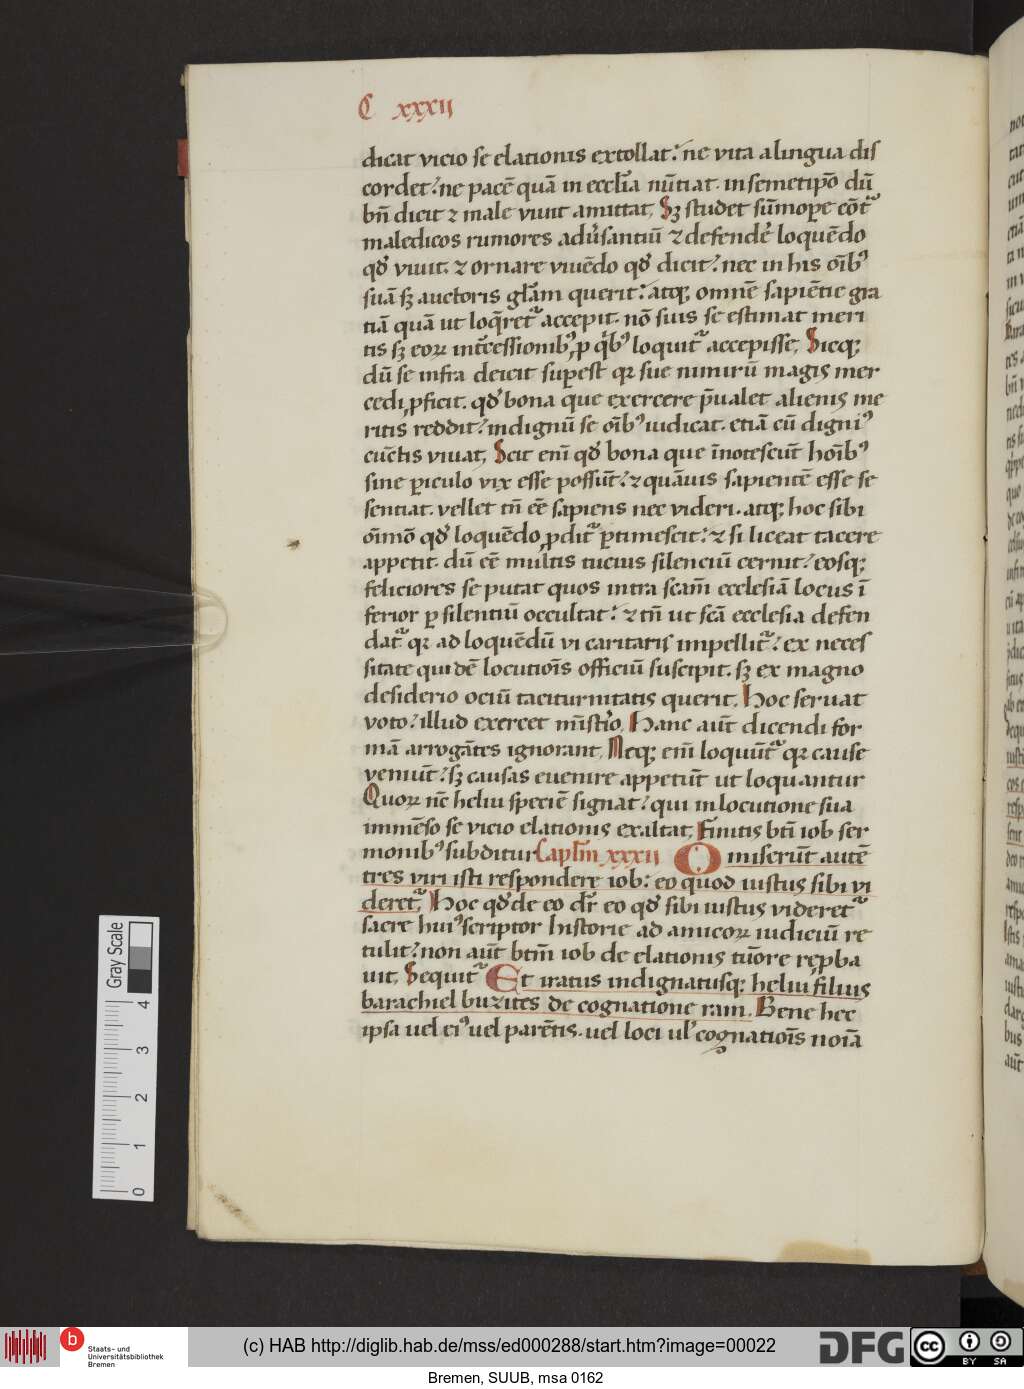 C xxxii
dicat vicio se elationis extollat? ne vita a lingua dis
cordet? ne pacē quā in eccl̄ia nūtiat. in semetip̄o dū
bn̄ dicit ⁊ male vivit amittat. Sꝫ studet sūmopꝑe cōtᷓ
maledicos rumores adv̄santiū ⁊ defendē loquēdo
qđ vivit. ⁊ ornare vivēdo qđ dicit? nec in his oībꝰ
suā sꝫ auctoris glām querit? atqꝫ omnē sapiētie gra
tiā quā ut loq̄retᷓ accepit. nō suis se estimat meri
tis sꝫ eoꝝ int̄cessionibꝰ ꝓ q̄bꝰ loquitᷓ accepisse. Sicqꝫ
dū se infra deicit suꝑest qꝛ sue nimirū magis mer
cedi ꝓficit. qđ bona que exercere p̄valet alienis me
ritis reddit? indignū se oībꝰ iudicat. etiā cū digniꝰ
cūctis vivat. Scit enī qđ bona que īnotescūt hoībꝰ
sine ꝑiculo vix esse possūt? ⁊ quāvis sapientē esse se
sentiat. vellet tn̄ eē sapiens nec videri. atqꝫ hoc sibi
oīmō qđ loquēdo ꝓditᷓ ꝑtimescit? ⁊ si liceat tacere
appetit. dū eē multis tucius silenciū cernit? eosqꝫ
feliciores se putat quos intra scām ecclesiā locus ī
ferior ꝑ silentiū occultat? ⁊ tn̄ ut scā ecclesia defen
datᷓ qꝛ ad loquēdū vi caritatis impellitᷓ? ex neces
sitate quidē locutiois officiū suscipit. sꝫ ex magno
desiderio ociū taciturnitatis querit. Hoc servat
voto? illud exercet mīstio. Hanc aūt dicendi for
mā arrogātes ignorant. Neqꝫ enī loquūtᷓ qꝛ cause
veniūt? sꝫ causas evenire appetūt ut loquantur
Quoꝝ nc̄ heliu speciē signat? qui in locutione sua
immēso se vicio elationis exaltat. Finitis bt̄i iob ser
monibꝰ subditur Caplm̄ xxxii Omiserūt autē
tres viri isti respondere iob: eo quod iustus sibi vi
deretᷓ. Hoc qđ de eo dr̄ eo qđ sibi iustus videretᷓ
sacre huiꝰ scriptor historie ad amicoꝝ iudiciū re
tulit? non aūt btm̄ iob de elationis tūore rep̄ba
vit. Sequitᷓ Et iratus indignatusqꝫ heliu filius
barachiel buzites de cognatione ram. Bene hec
ipsa vel eiꝰ vel parētis. vel loci ul' cognatiois noīa
Gray Scale
4
3
2
1
0
b
Staats- und
Universitätsbibliothek
Bremen
(c) HAB http://diglib.hab.de/mss/ed000288/start.htm?image=00022
DFG
cc
BY SA
Bremen, SUUB, msa 0162